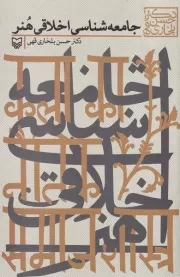 جامعه شناسی اخلاقی هنر
دکتر حسن بلخاری قهی
جامعه
شناسی
اخلاقی
هنر
समाजशास्त्र